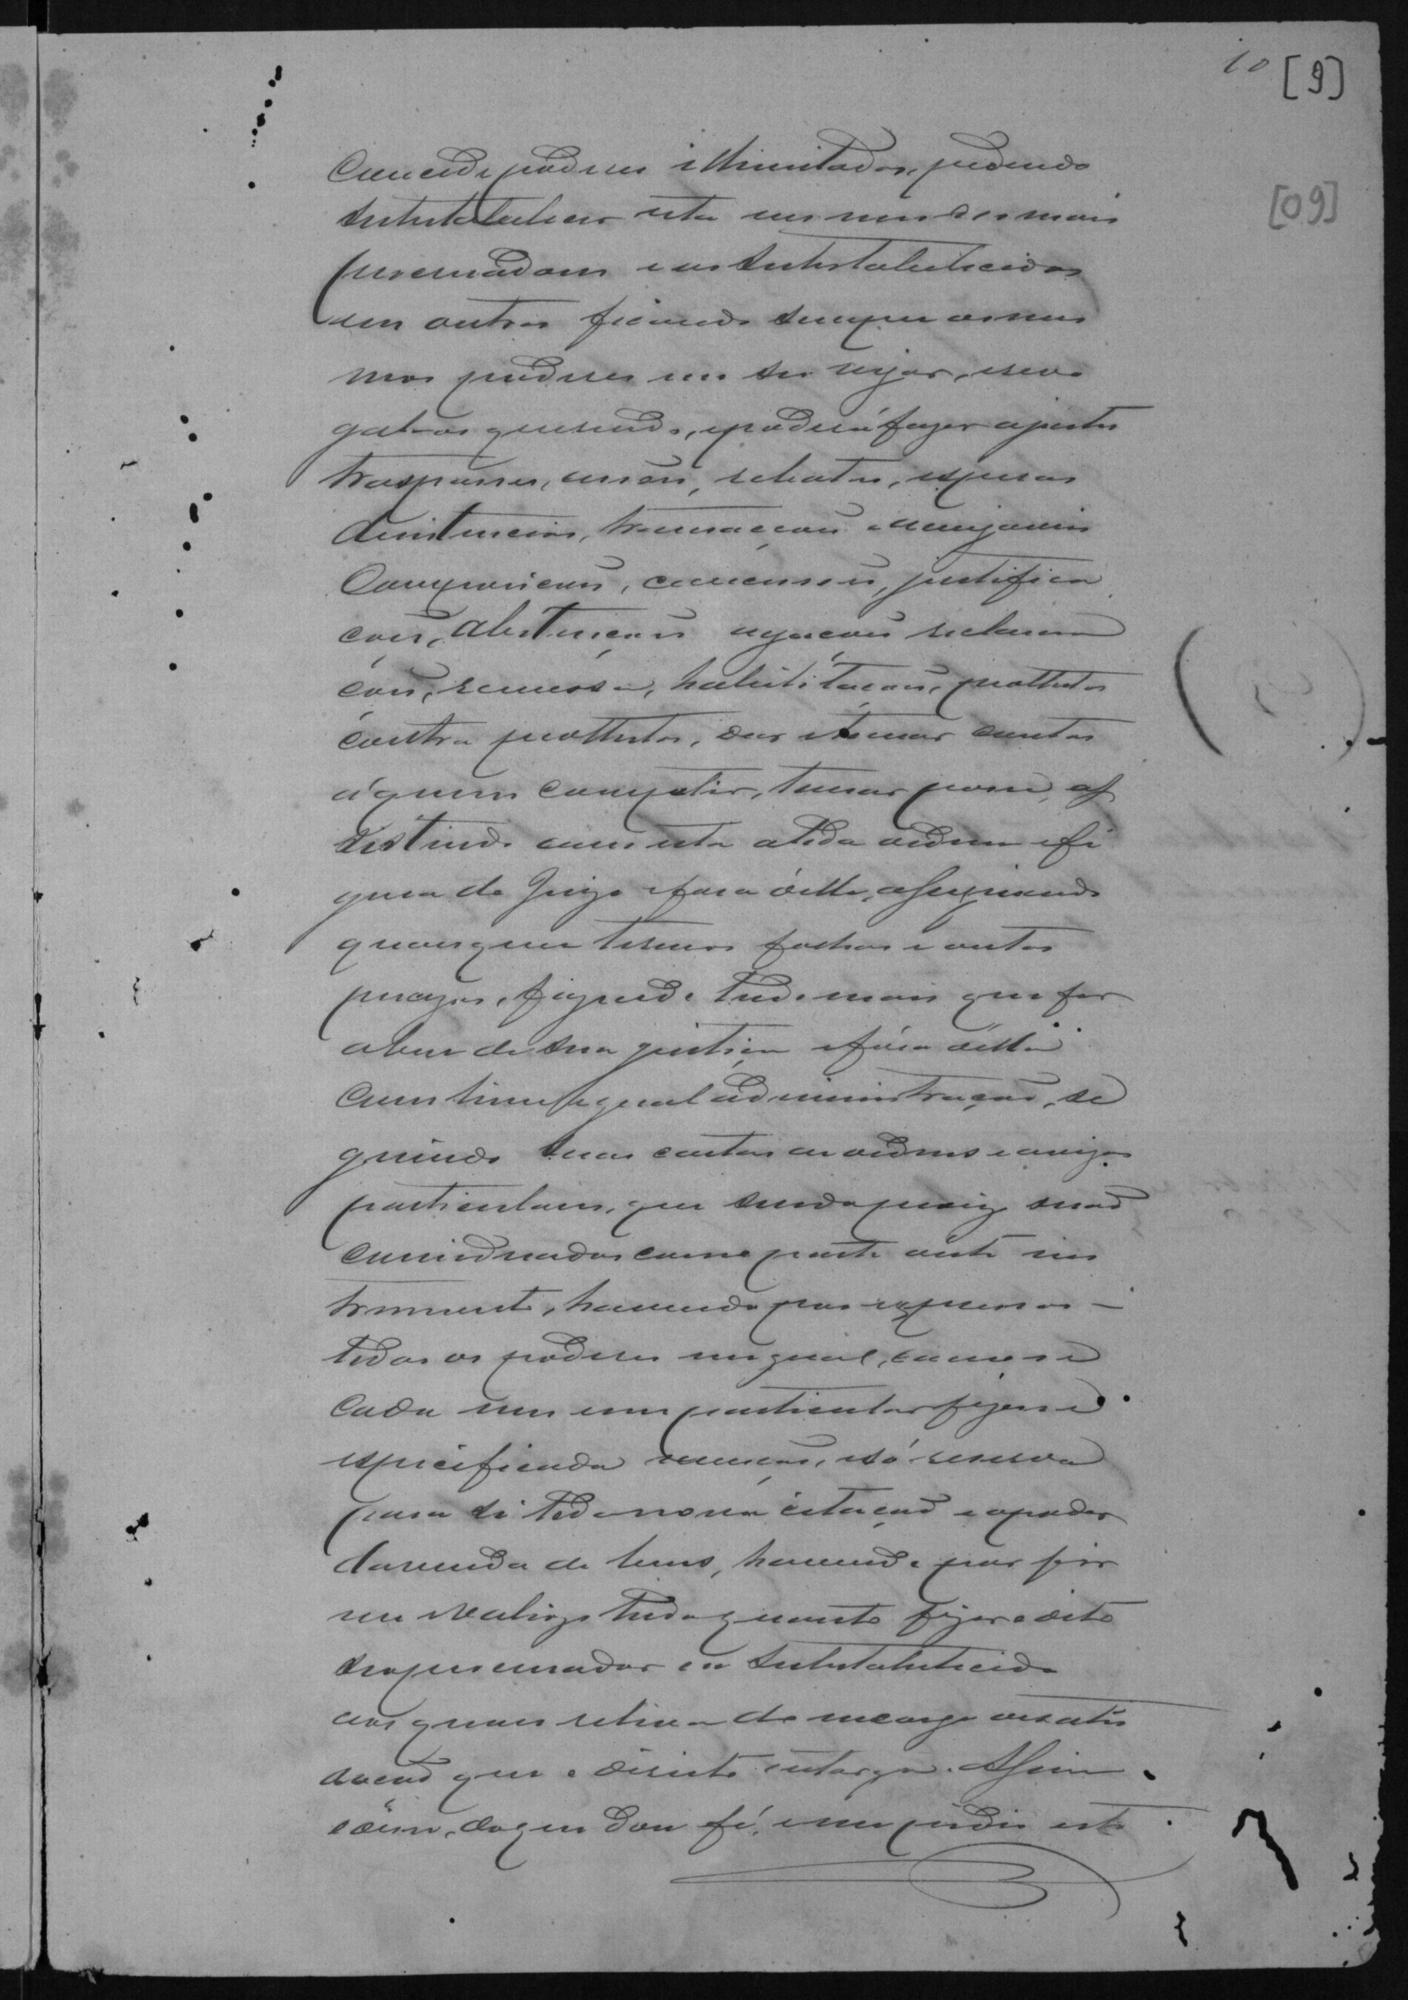 10 [9]
[09]
Concede poderes illimitados, podendo
substabelecer esta em um ou mais
procuradores e os substabelecidos
em outros ficando sempre os mes
mos poderes em seu vigor, e revo
gal-os querendo, e poderá fazer ajustes
traspasses, cessões, rebates, esperas
desistencias, transacções e
Composicões, concessões, justifica
cões, abstenções reclama
cões, remessa, habilitacões, protestos
contra protestos, dar e tomar contas
á quem competir, tomar posse, as
sistindo com esta a toda ordem e fi
gura de Juizo e fora delle, assignando
quaesquer termos folhas e autos
precizos, fazendo tudo mais que for
a bem de sua justiça e fóra della
Com livre e geral administração, se
guindo suas cartas de ordens e avizos
particulares, que sendo precizo serão
considerados como parte deste ins
trumento, havendo por expressos
todos os poderes em geral, como se
Cada um em particular fizesse
especificada menção, e só reserva
para si toda nova citação e a poder
da venda de bens, havendo por fir
me e valiozo tudo quanto fizer o dito
seu procurador ou substabelecido
aos quaes releva do encargo da satis
dação que o direito outorga. Assim
o disse, do que dou fé, e me pedio este